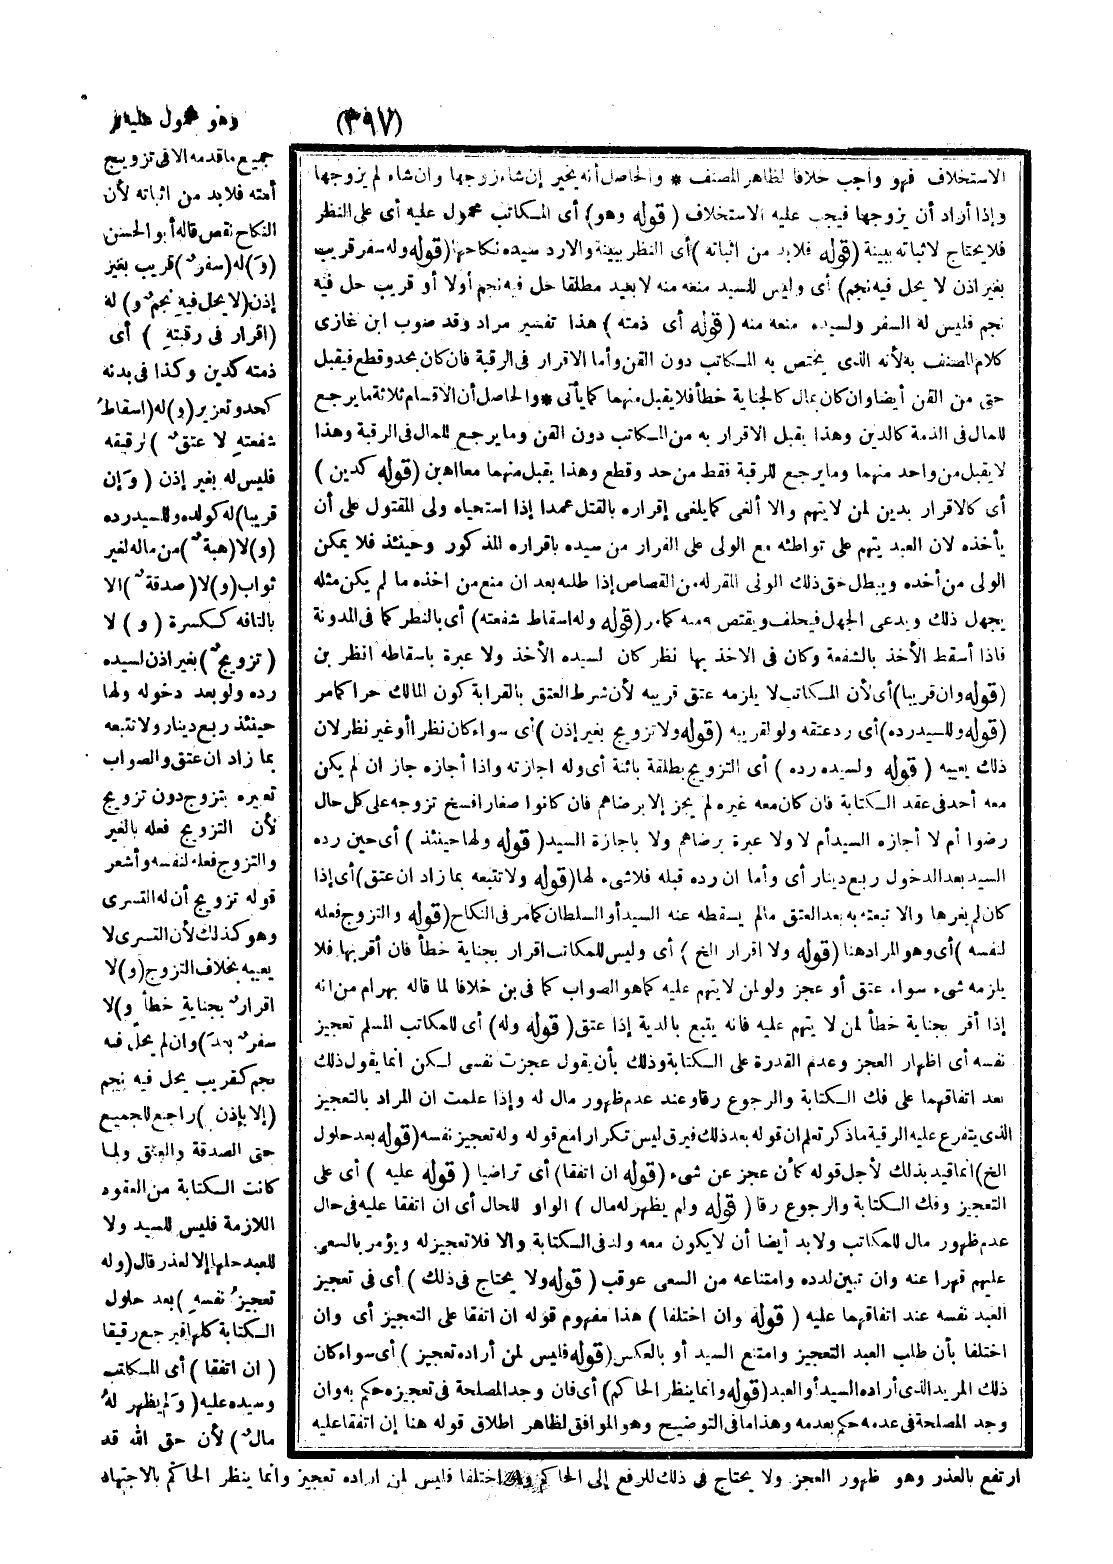 (٣٩٧)
وهو محمول عليه في
جميع ما قدمه الا في تزويج
أمته فلابد من اثباته لأن
النكاح نقص قاله أبو الحسن
(و) له (سفر) قريب بغير
إذن (لا يحل فيه نجم و) له
(اقرار في رقبته) أى
ذمته كدين وكذا في بدنه
كحد وتعزير (و) له (اسقاط
شفعته لا عتق) لرقيقه
فليس له بغير إذن (وإن
قريبا) له كولده وللسيد رده
(و) لا (هبة) من ماله لغير
ثواب (و) لا (صدقة) الا
بالتافه ككسرة (و) لا
(تزويج) بغير اذن لسيده
رده ولو بعد دخوله ولها
حينئذ ربع دينار ولا نتبعه
بما زاد ان عتق والصواب
تعبيره بتزوج دون تزويج
لأن التزويج فعله بالغير
والتزوج فعله لنفسه وأشعر
قوله تزويج أن له التسرى
وهو كذلك لأن التسرى لا
يعيبه بخلاف التزوج (و) لا
اقرار بجناية خطأ و) لا
سفر بعد) وان لم يحل فيه
نجم كقريب يحل فيه نجم
(إلا بإذن) راجع للجميع
حتى الصدقة والعتق ولما
كانت الكتابة من العقود
اللازمة فليس للسيد ولا
للعبد حلها إلا لعذر قال (وله
تعجيز نفسه) بعد حلول
الكتابة كلها فيرجع رقيقا
(ان اتفقا) أى المكاتب
وسيده عليه (ولم يظهر له
مال) لأن حق الله قد
الاستخلاف فهو واجب خلافا لظاهر المصنف * والحاصل أنه يخير إن شاء زوجها وان شاء لم يزوجها
وإذا أراد أن يزوجها فيجب عليه الاستخلاف (قوله وهو) أى المكاتب محمول عليه أى على النظر
فلا يحتاج لاثباته ببينة (قوله فلابد من اثباته) أى النظر ببينة والارد سيده نكاحها (قوله وله سفر قريب
بغير اذن لا يحل فيه نجم) أى وليس للسيد منعه منه لا بعيد مطلقا حل فيه نجم أولا أو قريب حل فيه
نجم فليس له السفر ولسيده منعه منه (قوله أى ذمته) هذا تفسير مراد وقد صوب ابن غازى
كلام المصنف به لأنه الذى يختص به المكاتب دون القن وأما الاقرار في الرقبة فان كان بحد وقطع فيقبل
حتى من القن أيضا وان كان بمال كالجناية خطأ فلا يقبل منهما كما يأتى * والحاصل أن الاقسام ثلاثة ما يرجع
للمال في الذمة كالدين وهذا يقبل الاقرار به من المكاتب دون القن وما يرجع للمال في الرقبة وهذا
لا يقبل من واحد منهما وما يرجع للرقبة فقط من حد وقطع وهذا يقبل منهما معا اهبن (قوله كدين)
أى كالاقرار بدين لمن لا يتهم والا ألغى كما يلغى إقراره بالقتل عمدا إذا استحياه ولى المقتول على أن
يأخذه لان العبد يتهم على تواطئه مع الولى على الفرار من سيده باقراره المذكور وحينئذ فلا يمكن
الولى من أخده ويبطل حق ذلك الولى المقر له من القصاص إذا طلبه بعد ان منع من اخذه ما لم يكن مثله
يجهل ذلك ويدعى الجهل فيحلف ويقتص منه كما مر (قوله وله اسقاط شفعته) أى بالنظر كما في المدونة
فاذا أسقط الأخذ بالشفعة وكان في الاخذ بها نظر كان لسيده الأخذ ولا عبرة باسقاطه انظر بن
(قوله وان قريبا) أى لأن المكاتب لا يلزمه عتق قريبه لأن شرط العتق بالقرابة كون المالك حرا كما مر
(قوله وللسيد رده) أى رد عتقه ولو لقريبه (قوله ولا تزويج بغير إذن) أى سواء كان نظرا أو غير نظر لان
ذلك يعيبه (قوله ولسيده رده) أى التزويج بطلقة بائنة أى وله اجازته واذا أجازه جاز ان لم يكن
معه أحد في عقد الكتابة فان كان معه غيره لم يجز إلا برضاهم فان كانوا صغارا فسخ تزوجه على كل حال
رضوا أم لا أجازه السيد أم لا ولا عبرة برضاهم ولا باجازة السيد (قوله ولها حينئذ) أى حين رده
السيد بعد الدخول ربع دينار أى وأما ان رده قبله فلا شيء لها (قوله ولا تتبعه بما زاد ان عتق) أى إذا
كان لم يغرها والا تبعته به بعد العتق مالم يسقطه عنه السيد أو السلطان كما مر في النكاح (قوله والتزوج فعله
لنفسه) أى وهو المراد هنا (قوله ولا اقرار الخ) أى وليس للمكاتب اقرار بجناية خطأ فان أقر بها فلا
يلزمه شيء سواء عتق أو عجز ولو لمن لا يتهم عليه كما هو الصواب كما في بن خلافا لما قاله بهرام من انه
إذا أقر بجناية خطأ لمن لا يتهم عليه فانه يتبع بالدية إذا عتق (قوله وله) أى للمكاتب المسلم تعجيز
نفسه أى اظهار العجز وعدم القدرة على الكتابة وذلك بأن يقول عجزت نفسى لكن انما يقول ذلك
بعد اتفاقهما على فك الكتابة والرجوع رقا وعند عدم ظهور مال له وإذا علمت ان المراد بالتعجيز
الذى يتفرع عليه الرقبة ما ذكر تعلم ان قوله بعد ذلك فيرق ليس تكرارا مع قوله وله تعجيز نفسه (قوله بعد حلول
الخ) انما قيد بذلك لأجل قوله كأن عجز عن شيء (قوله ان اتفقا) أى تراضيا (قوله عليه) أى على
التعجيز وفك الكتابة والرجوع رقا (قوله ولم يظهر له مال) الواو للحال أى ان اتفقا عليه في حال
عدم ظهور مال للمكاتب ولابد أيضا أن لا يكون معه ولد في الكتابة والا فلا تعجيز له ويؤمر بالسعى
عليهم قهرا عنه وان تبين لدده وامتناعه من السعى عوقب (قوله ولا يحتاج في ذلك) أى في تعجيز
العبد نفسه عند اتفاقهما عليه (قوله وان اختلفا) هذا مفهوم قوله ان اتفقا على التعجيز أى وان
اختلفا بأن طلب العبد التعجيز وامتنع السيد أو بالعكس (قوله فليس لمن أراده تعجيز) أى سواء كان
ذلك المريد الذى أراده السيد أو العبد (قوله وانما ينظر الحاكم) أى فان وجد المصلحة في تعجيزه حكم به وان
وجد المصلحة في عدمه حكم بعدمه وهذا ما في التوضيح وهو الموافق لظاهر اطلاق قوله هنا إن اتفقا عليه
ارتفع بالعذر وهو ظهور العجز ولا يحتاج في ذلك للرفع إلى الحاكم وان اختلفا فليس لمن اراده تعجيز وانما ينظر الحاكم بالاجتهاد